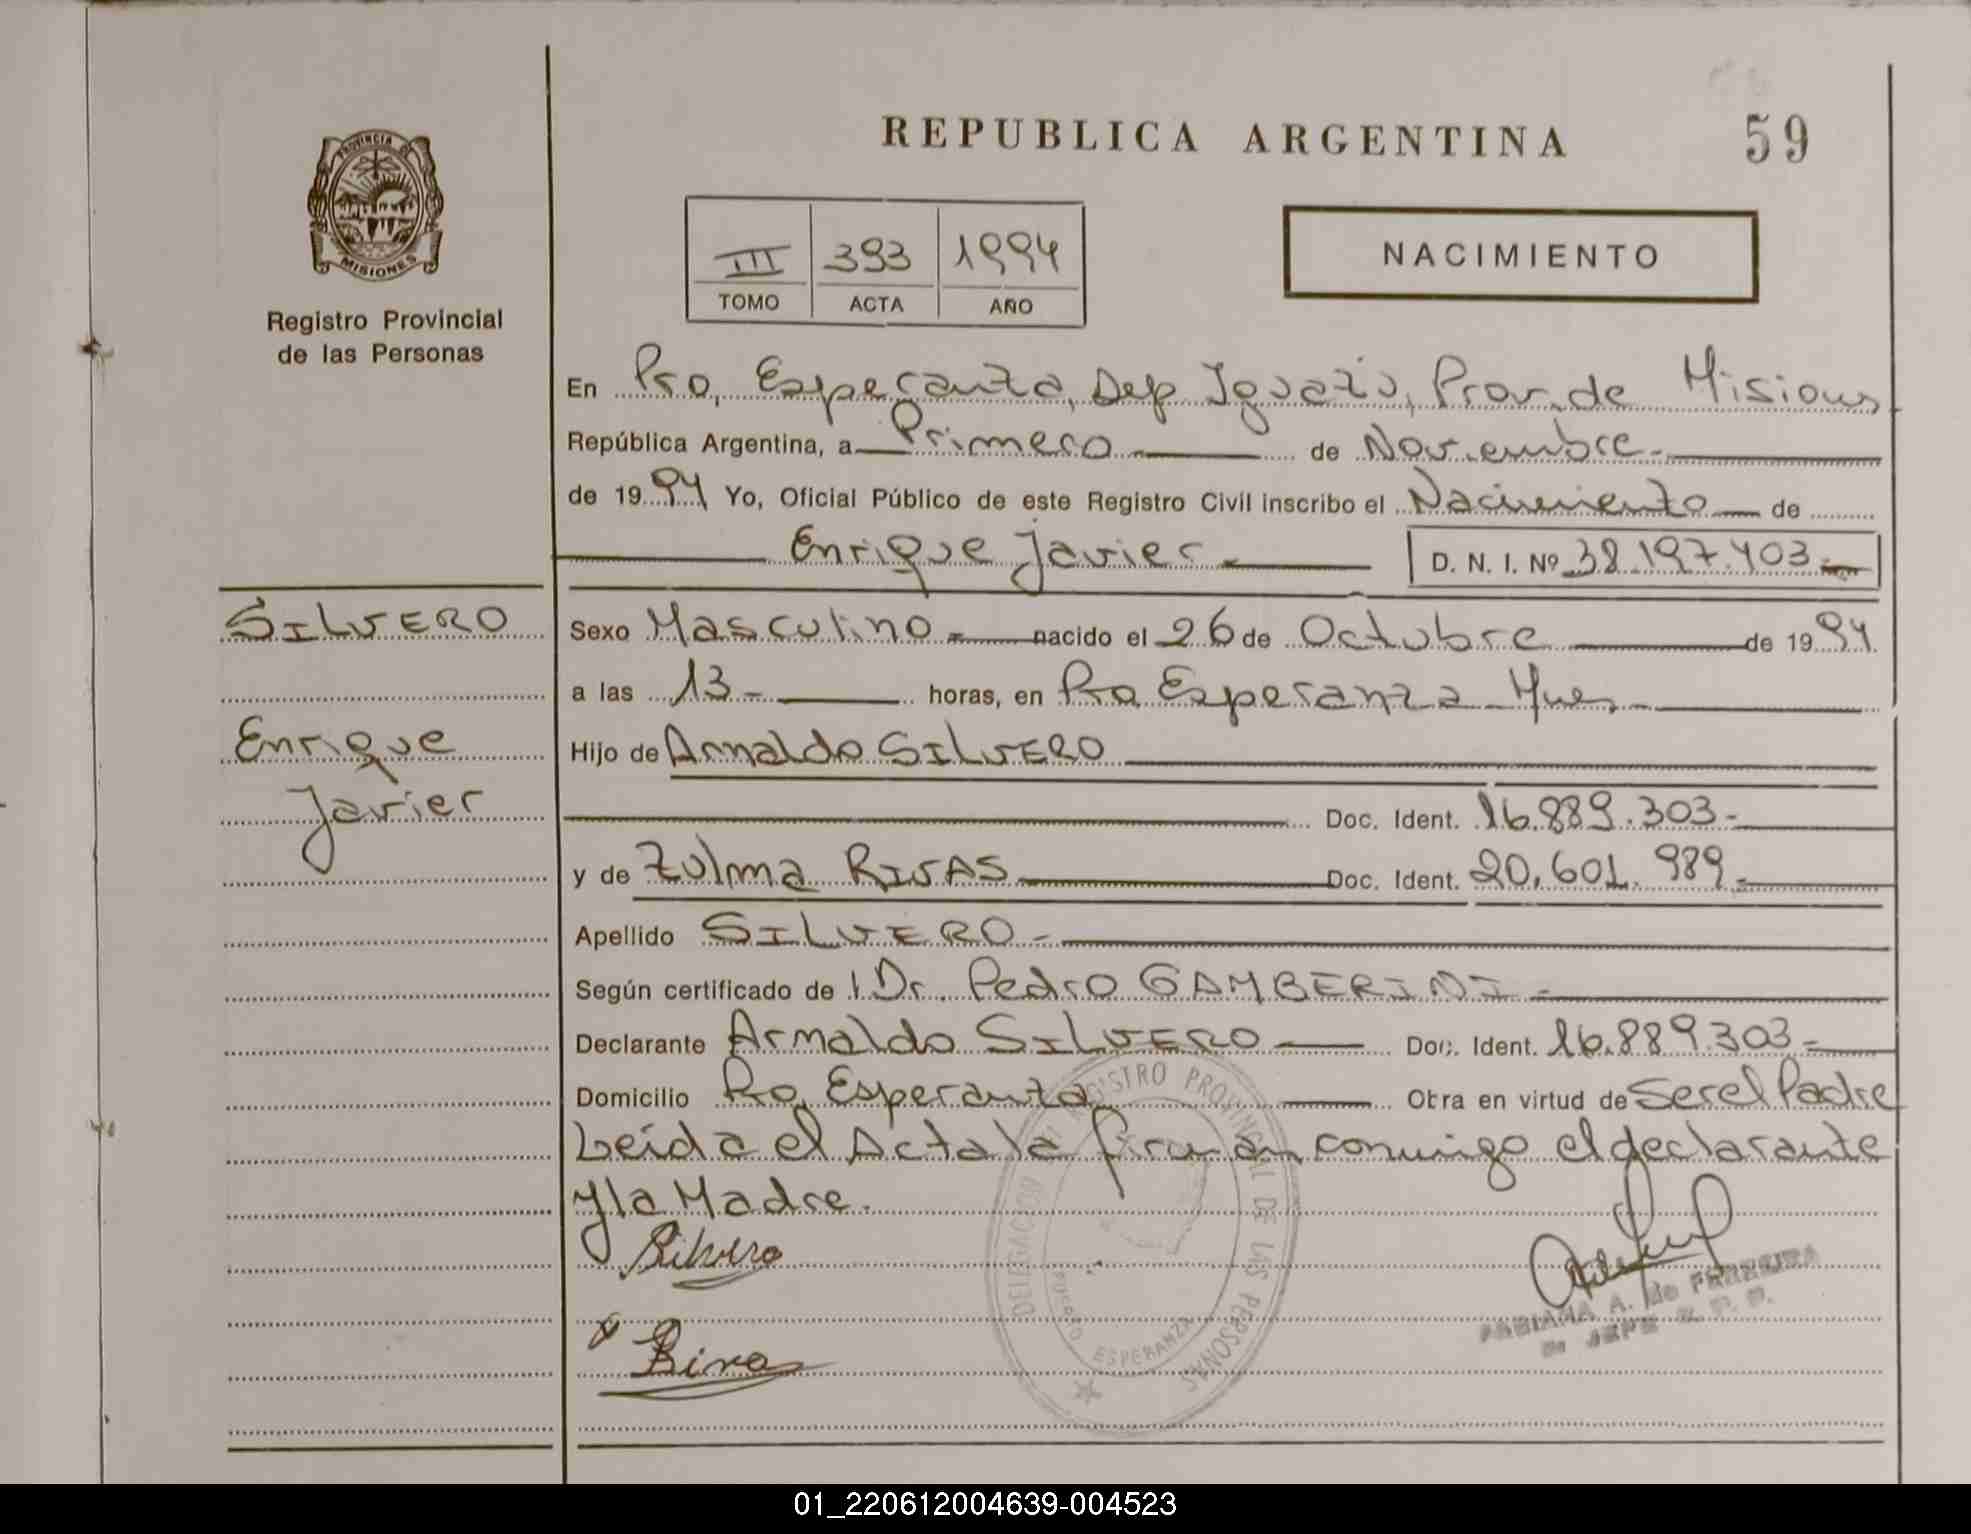 REPUBLICA ARGENTINA
59
PROVINCIA DE
MISIONES
Registro Provincial
de las Personas
III 393 1994
TOMO ACTA AÑO
NACIMIENTO
En Pto, Esperanza, Dep Iguazú, Prov. de Misiones
República Argentina, a Primero de Noviembre.-
de 19 94 Yo, Oficial Público de este Registro Civil inscribo el Nacimiento de
Enrique Javier.- D. N. I. Nº 38.197.403.-
SILVERO
Enrique
Javier
Sexo Masculino.- nacido el 26 de Octubre de 19 94
a las 13.- horas, en Pto Esperanza Mnes.-
Hijo de Arnaldo SILVERO
Doc. Ident. 16.889.303.-
y de Zulma RIVAS Doc. Ident. 20.601.989.-
Apellido SILVERO.-
Según certificado de l Dr. Pedro GAMBERINI.-
Declarante Arnaldo SILVERO Doc. Ident. 16.889.303.-
Domicilio Pto, Esperanza Obra en virtud de Ser el Padre
Leída el Acta la firman conmigo el declarante
y la Madre.
Silvero
Rivas
DELEGACION REGISTRO PROVINCIAL DE LAS PERSONAS
PUERTO ESPERANZA
FABIANA A. de FERREIRA
JEFE R. P. P.
01_220612004639-004523